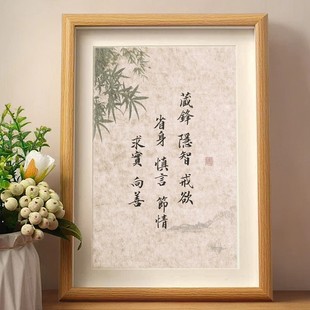 藏鋒 隱智 戒欲
省身 慎言 節情
求實 向善